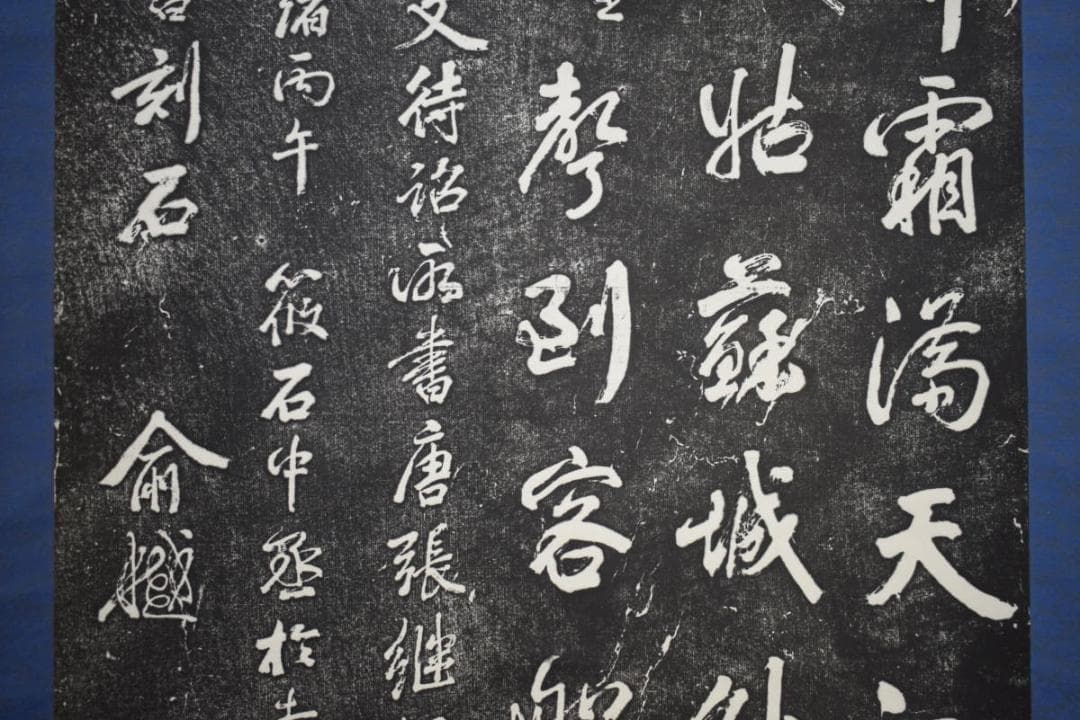 霜滿天
姑蘇城外
聲到客
文待詔所書唐張繼
緒丙午 筱石中丞於
刻石 俞樾